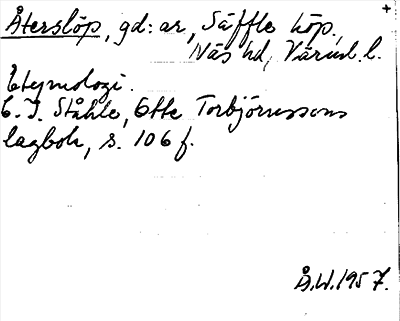 Återslöp, gd: ar, Säffle köp,
Näs hd, Värml. l.
Etymologi.
C. I. Ståhle, Otte Torbjörnssons
lagbok, s. 106 f.
Å.W. 1957.